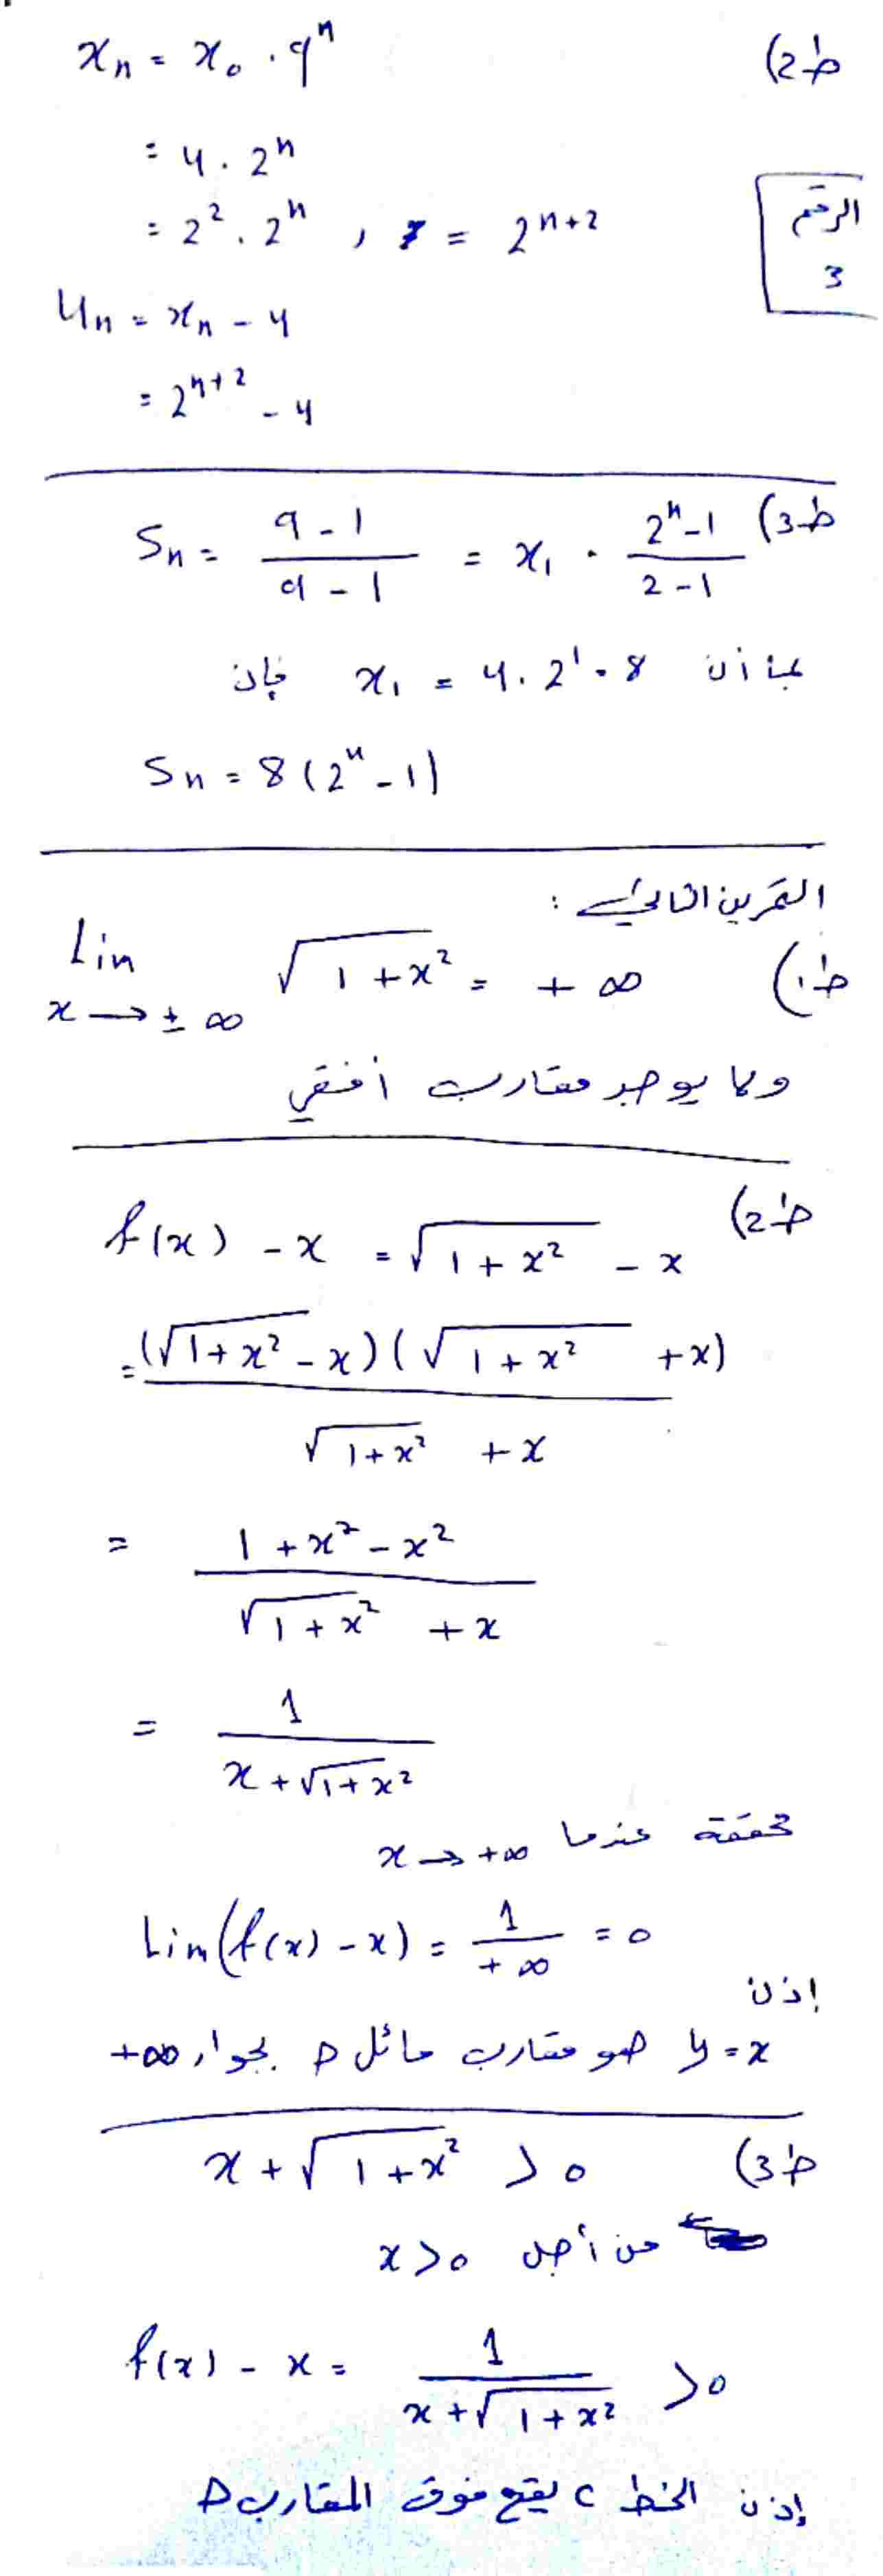 ط2)
xₙ = x₀ · qⁿ
= 4 · 2ⁿ
= 2² · 2ⁿ , = 2ⁿ⁺²
الرقم
3
uₙ = xₙ - 4
= 2ⁿ⁺² - 4
ط3)
Sₙ = (q - 1)/(q - 1) = x₁ · (2ⁿ - 1)/(2 - 1)
بما أن x₁ = 4 · 2¹ = 8 فإن
Sₙ = 8 (2ⁿ - 1)
التمرين الثاني :
ط1)
Lim x → ± ∞ √(1 + x²) = + ∞
ولا يوجد مقارب أفقي
ط2)
f(x) - x = √(1 + x²) - x
= (√(1 + x²) - x)(√(1 + x²) + x) / (√(1 + x²) + x)
= (1 + x² - x²) / (√(1 + x²) + x)
= 1 / (x + √(1 + x²))
محققة عندما x → +∞
Lim (f(x) - x) = 1/(+∞) = 0
إذن
y = x هو مقارب مائل D بجوار +∞
ط3)
x + √(1 + x²) > 0
من أجل x > 0
f(x) - x = 1 / (x + √(1 + x²)) > 0
إذن الخط C يقع فوق المقارب D